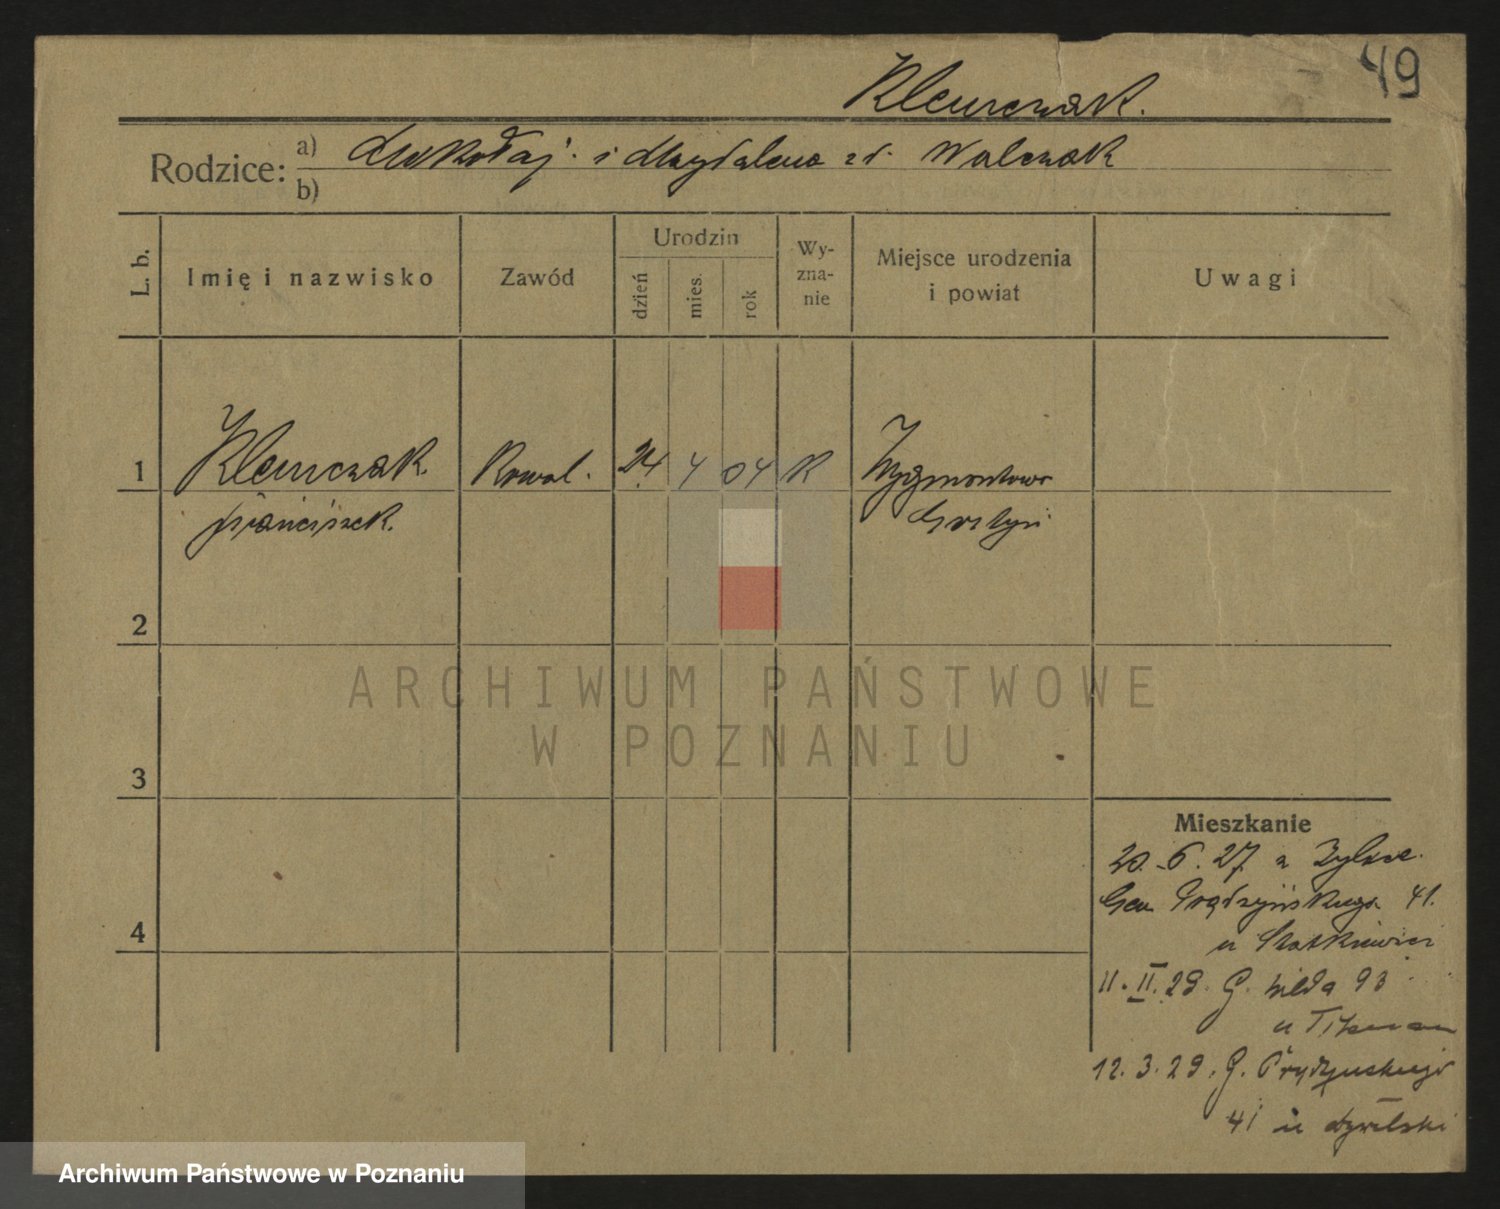 49
Klemczak.
Rodzice: a) Mikołaj i Magdalena zd. Walczak
b)
L. b.
Imię i nazwisko
Zawód
Urodzin
dzień
mies.
rok
Wy-
zna-
nie
Miejsce urodzenia
i powiat
Uwagi
1 Klemczak Kowal. 24 4 04 K Zygmuntowo
Franciszek. Gostyń
2
3
4
Mieszkanie
20.6.27 z
Gen Prądzyńskiego 41.
u
11.II.29. G. Wilda 93
u
12.3.29. G. Prądzyńskiego
41 u
ARCHIWUM PAŃSTWOWE
W POZNANIU
Archiwum Państwowe w Poznaniu